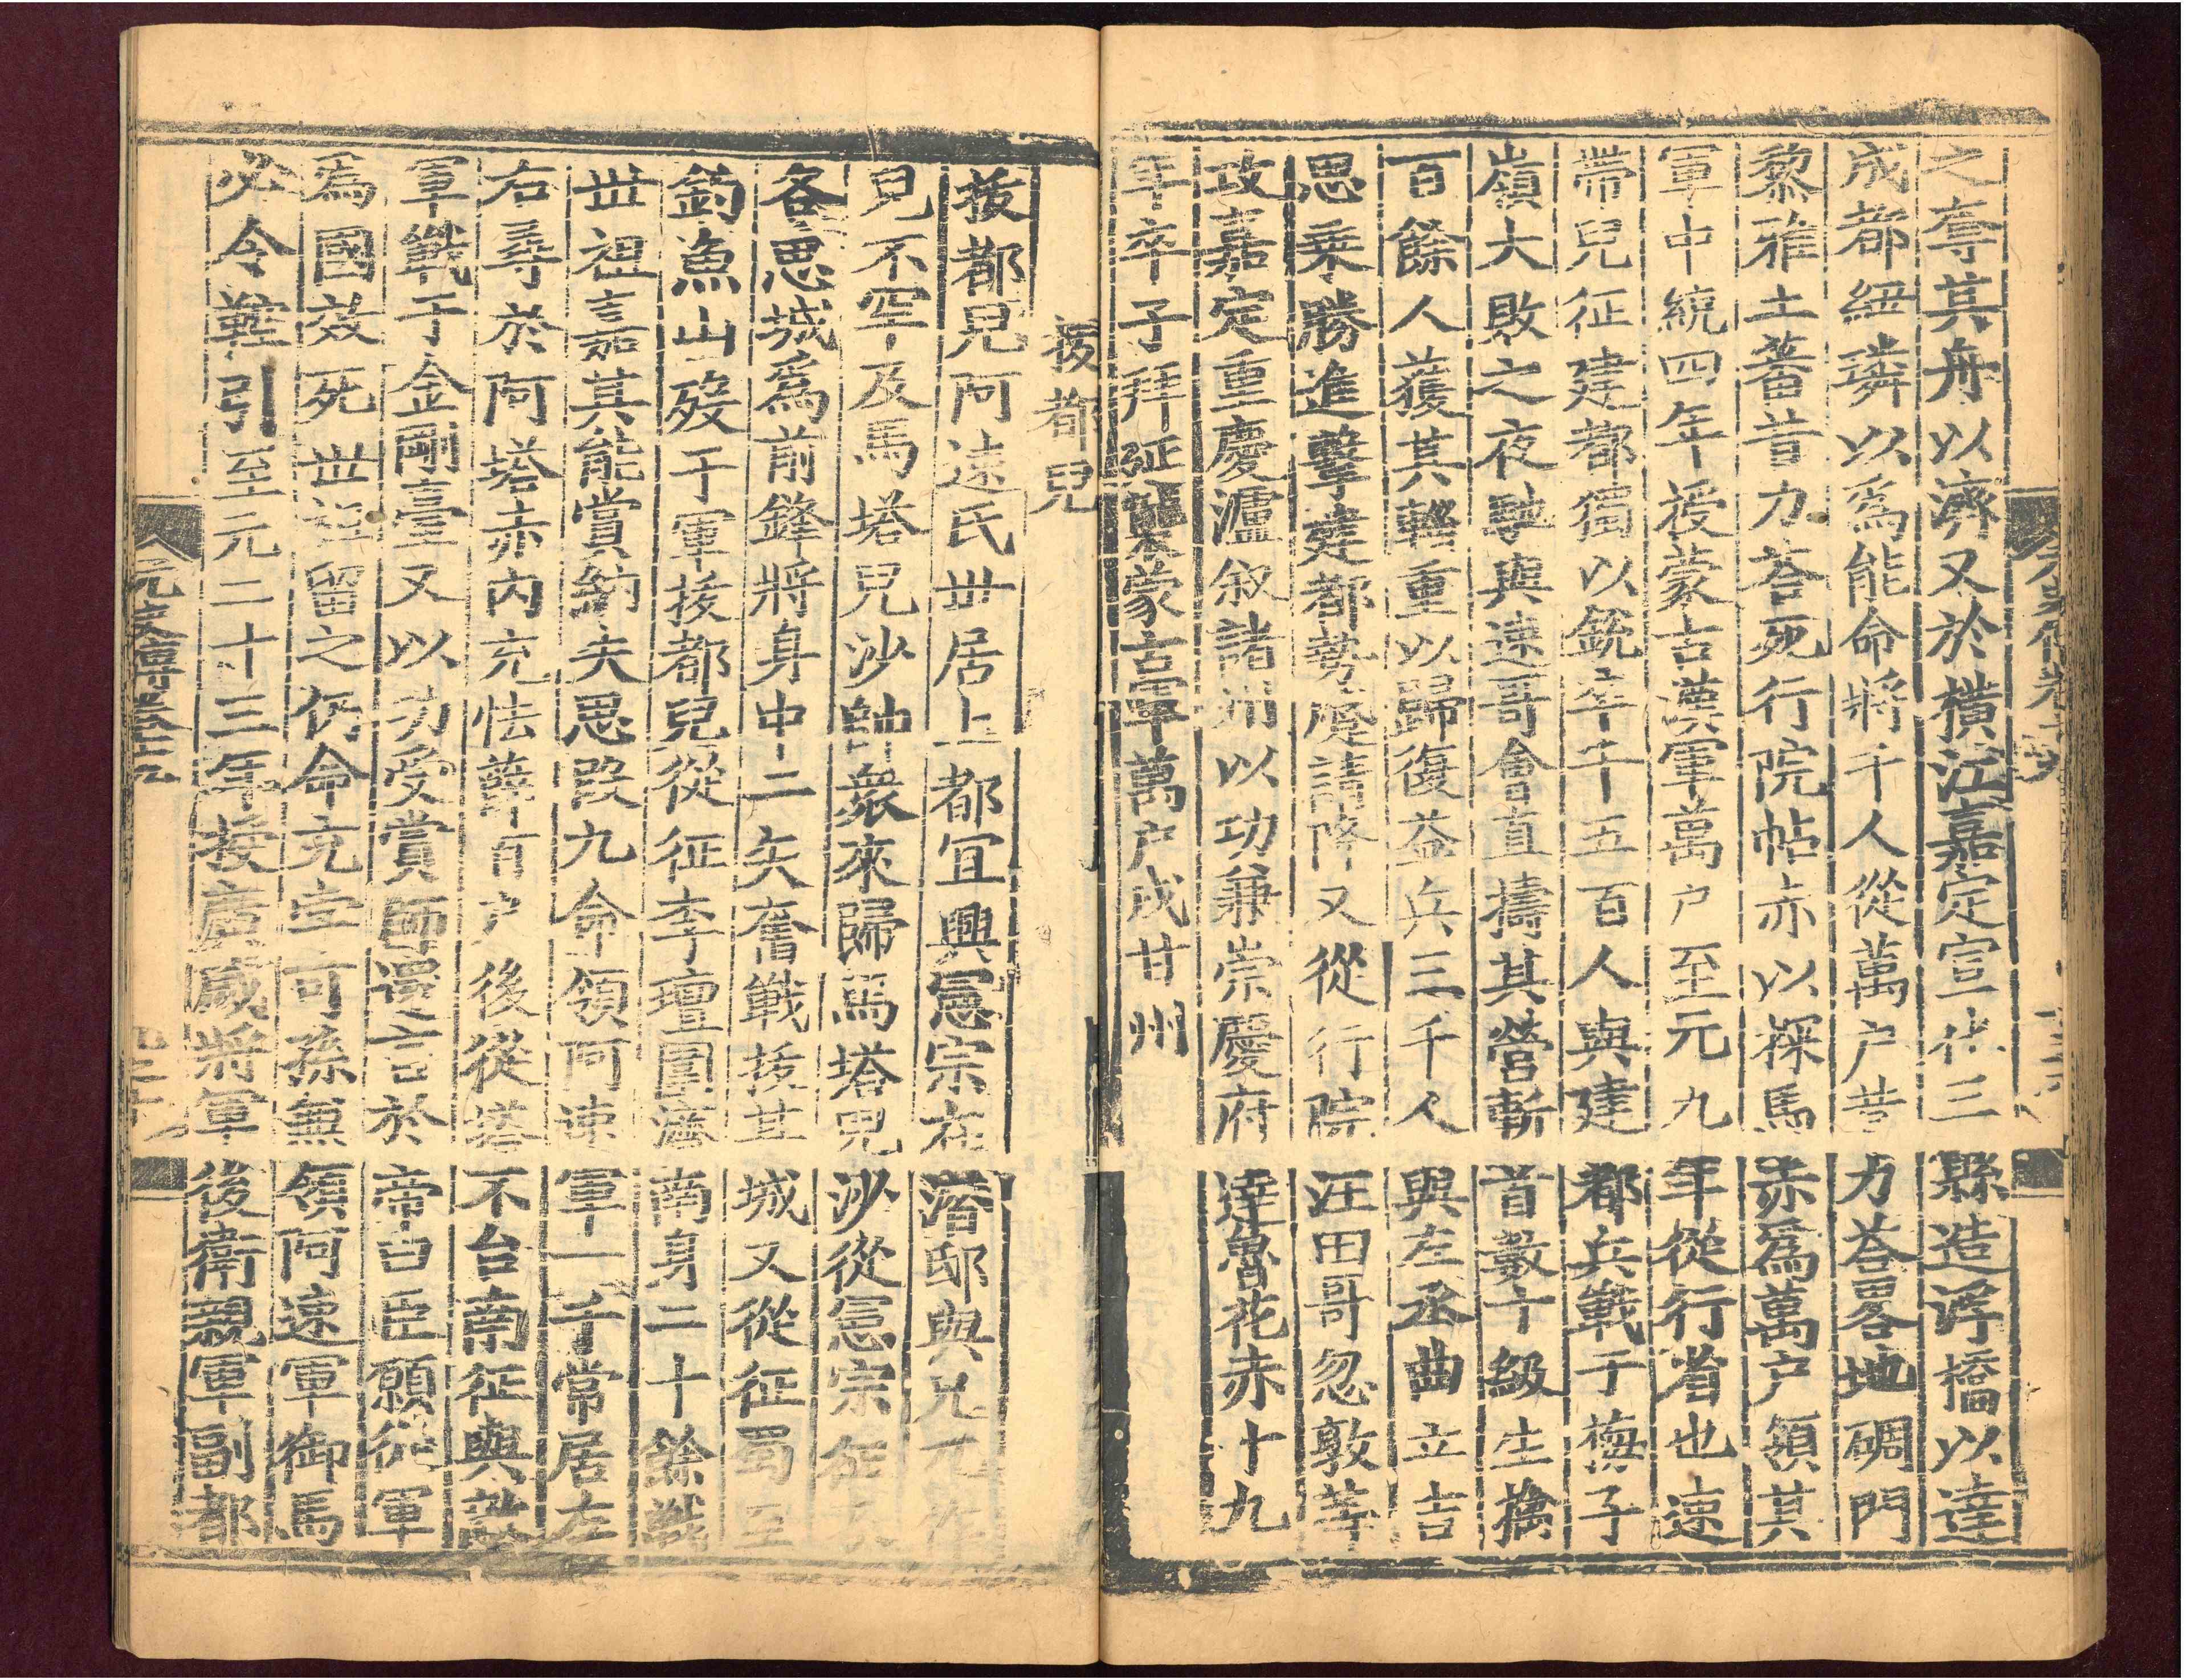 之奪其舟以濟又於橫江嘉定宣化三縣造浮橋以達
成都紐璘以爲能命將千人從萬户昔力荅畧地碉門
黎雅土蕃昔力荅死行院帖赤以探馬赤爲萬户領其
軍中統四年授蒙古漢軍萬户至元九年從行省也速
帶兒征建都獨以銳卒千五百人與建都兵戰于梅子
嶺大敗之夜馳與速哥會直擣其營斬首數十級生擒
百餘人獲其輜重以歸復益兵三千人與左丞曲立吉
思乗勝進擊建都勢蹙請降又從行院汪田哥忽敦等
攻嘉定重慶瀘叙諸州以功兼崇慶府達魯花赤十九
年卒子拜延襲蒙古軍萬户戍甘州
拔都兒
拔都兒阿速氏丗居上都宜興憲宗在潛邸與兄兀作
兒不罕及馬塔兒沙帥衆來歸馬塔兒沙從憲宗征
各思城爲前鋒將身中二矢奮戰拔其城又從征蜀至
釣魚山歿于軍拔都兒從征李璮圍濟南身二十餘戰
丗祖嘉其能賞納失思叚九命領阿速軍一千常居左
右尋於阿塔赤内充怯薛百户後從塔不台南征與
軍戰于金剛臺又以功受賞師還言於帝曰臣願從軍
爲國效死丗祖留之仍命充孛可孫兼領阿速軍御馬
必令鞚引至元二十三年授廣威將軍後衛親軍副都
元史傳卷十九